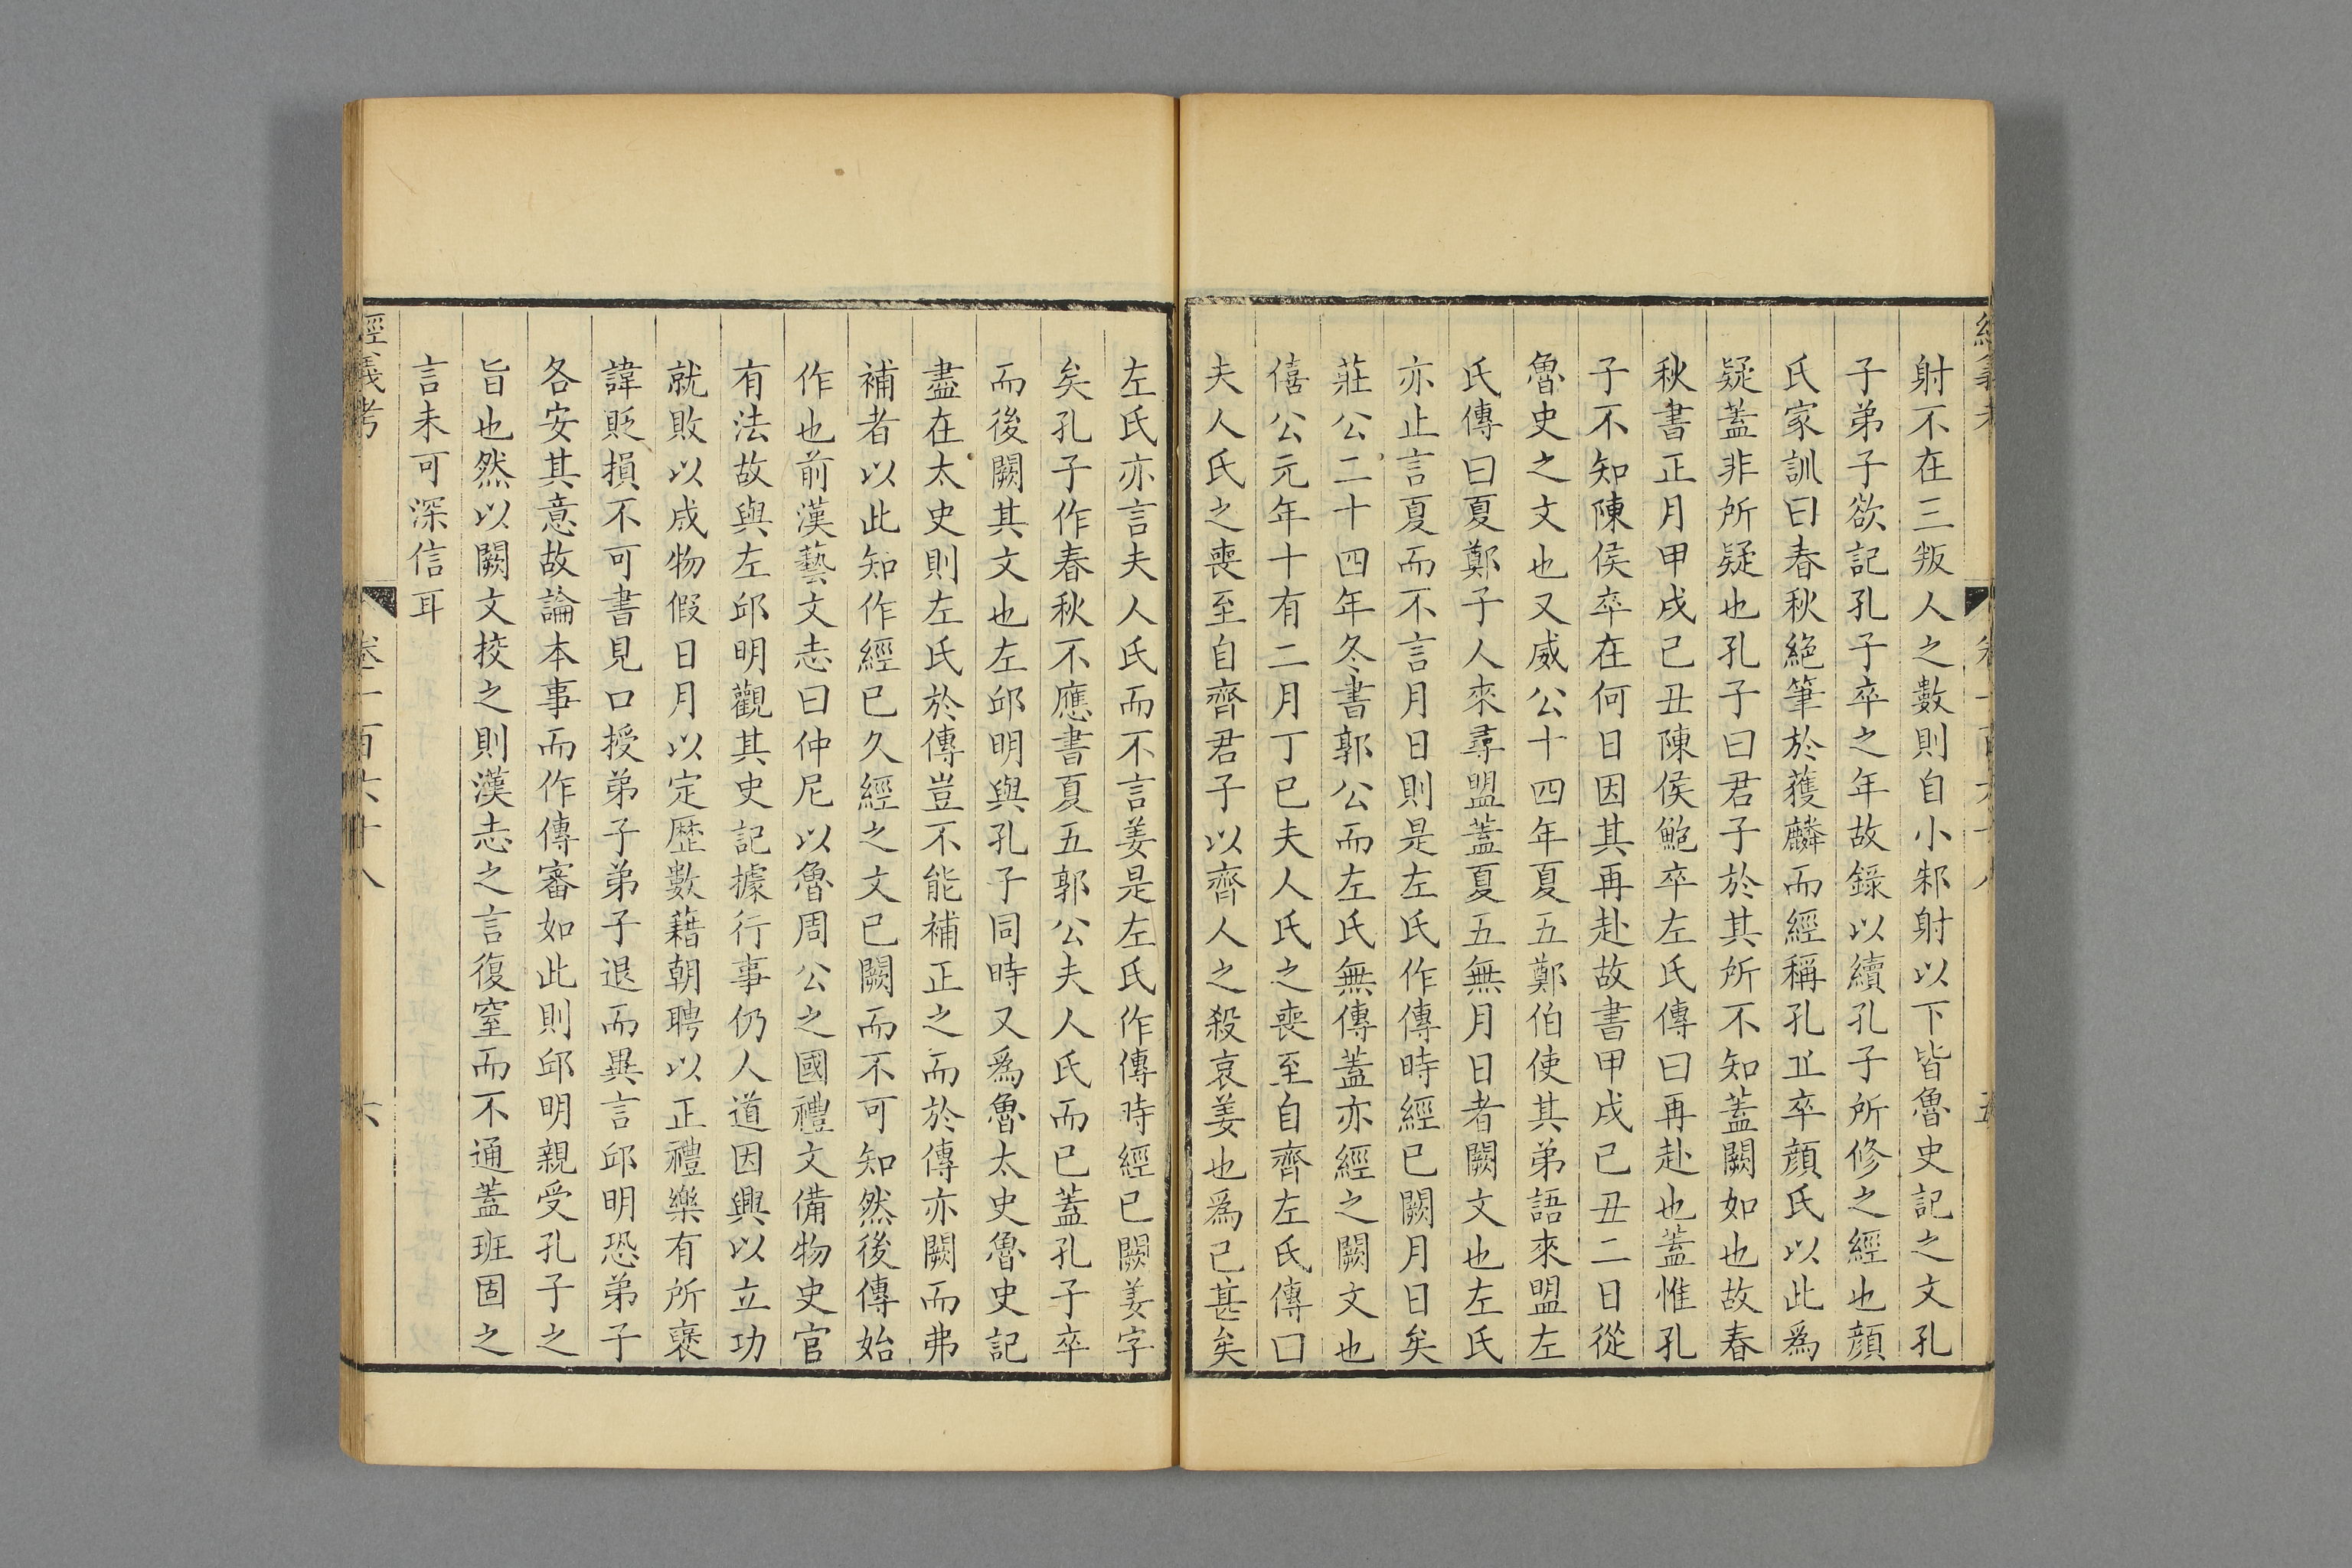 射不在三叛人之數則自小邾射以下皆魯史記之文孔
子弟子欲記孔子卒之年故錄以續孔子所修之經也顔
氏家訓曰春秋絕筆於獲麟而經稱孔丘卒顔氏以此爲
疑蓋非所疑也孔子曰君子於其所不知蓋闕如也故春
秋書正月甲戌己丑陳侯鮑卒左氏傳曰再赴也蓋惟孔
子不知陳侯卒在何日因其再赴故書甲戌己丑二日從
魯史之文也又威公十四年夏五鄭伯使其弟語來盟左
氏傳曰夏鄭子人來尋盟蓋夏五無月日者闕文也左氏
亦止言夏而不言月日則是左氏作傳時經已闕月日矣
莊公二十四年冬書郭公而左氏無傳蓋亦經之闕文也
僖公元年十有二月丁巳夫人氏之喪至自齊左氏傳曰
夫人氏之喪至自齊君子以齊人之殺哀姜也爲已甚矣
左氏亦言夫人氏而不言姜是左氏作傳時經已闕姜字
矣孔子作春秋不應書夏五郭公夫人氏而已蓋孔子卒
而後闕其文也左邱明與孔子同時又爲魯太史魯史記
盡在太史則左氏於傳豈不能補正之而於傳亦闕而弗
補者以此知作經已久經之文已闕而不可知然後傳始
作也前漢藝文志曰仲尼以魯周公之國禮文備物史官
有法故與左邱明觀其史記據行事仍人道因興以立功
就敗以成物假日月以定歷數藉朝聘以正禮樂有所褒
諱貶損不可書見口授弟子弟子退而異言邱明恐弟子
各安其意故論本事而作傳審如此則邱明親受孔子之
旨也然以闕文挍之則漢志之言復窒而不通蓋班固之
言未可深信耳
經義考 卷一百六十八 六